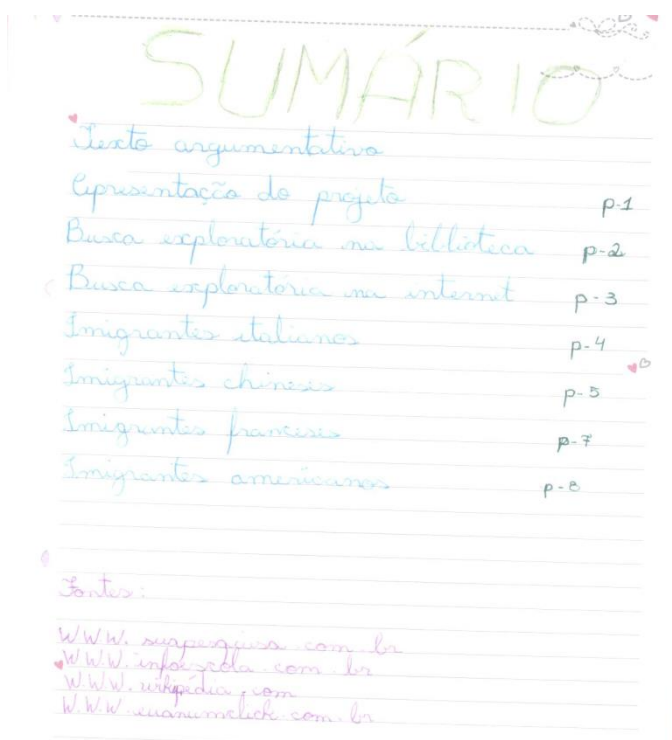 SUMÁRIO
Texto argumentativo
Apresentação do projeto p-1
Busca exploratória na biblioteca p-2
Busca exploratória na internet p-3
Imigrantes italianos p-4
Imigrantes chineses p-5
Imigrantes franceses p-7
Imigrantes americanos p-8
Fontes:
WWW. suapesquisa.com.br
WWW.infoescola.com.br
WWW.wikipédia.com
W.W.W. .com.br